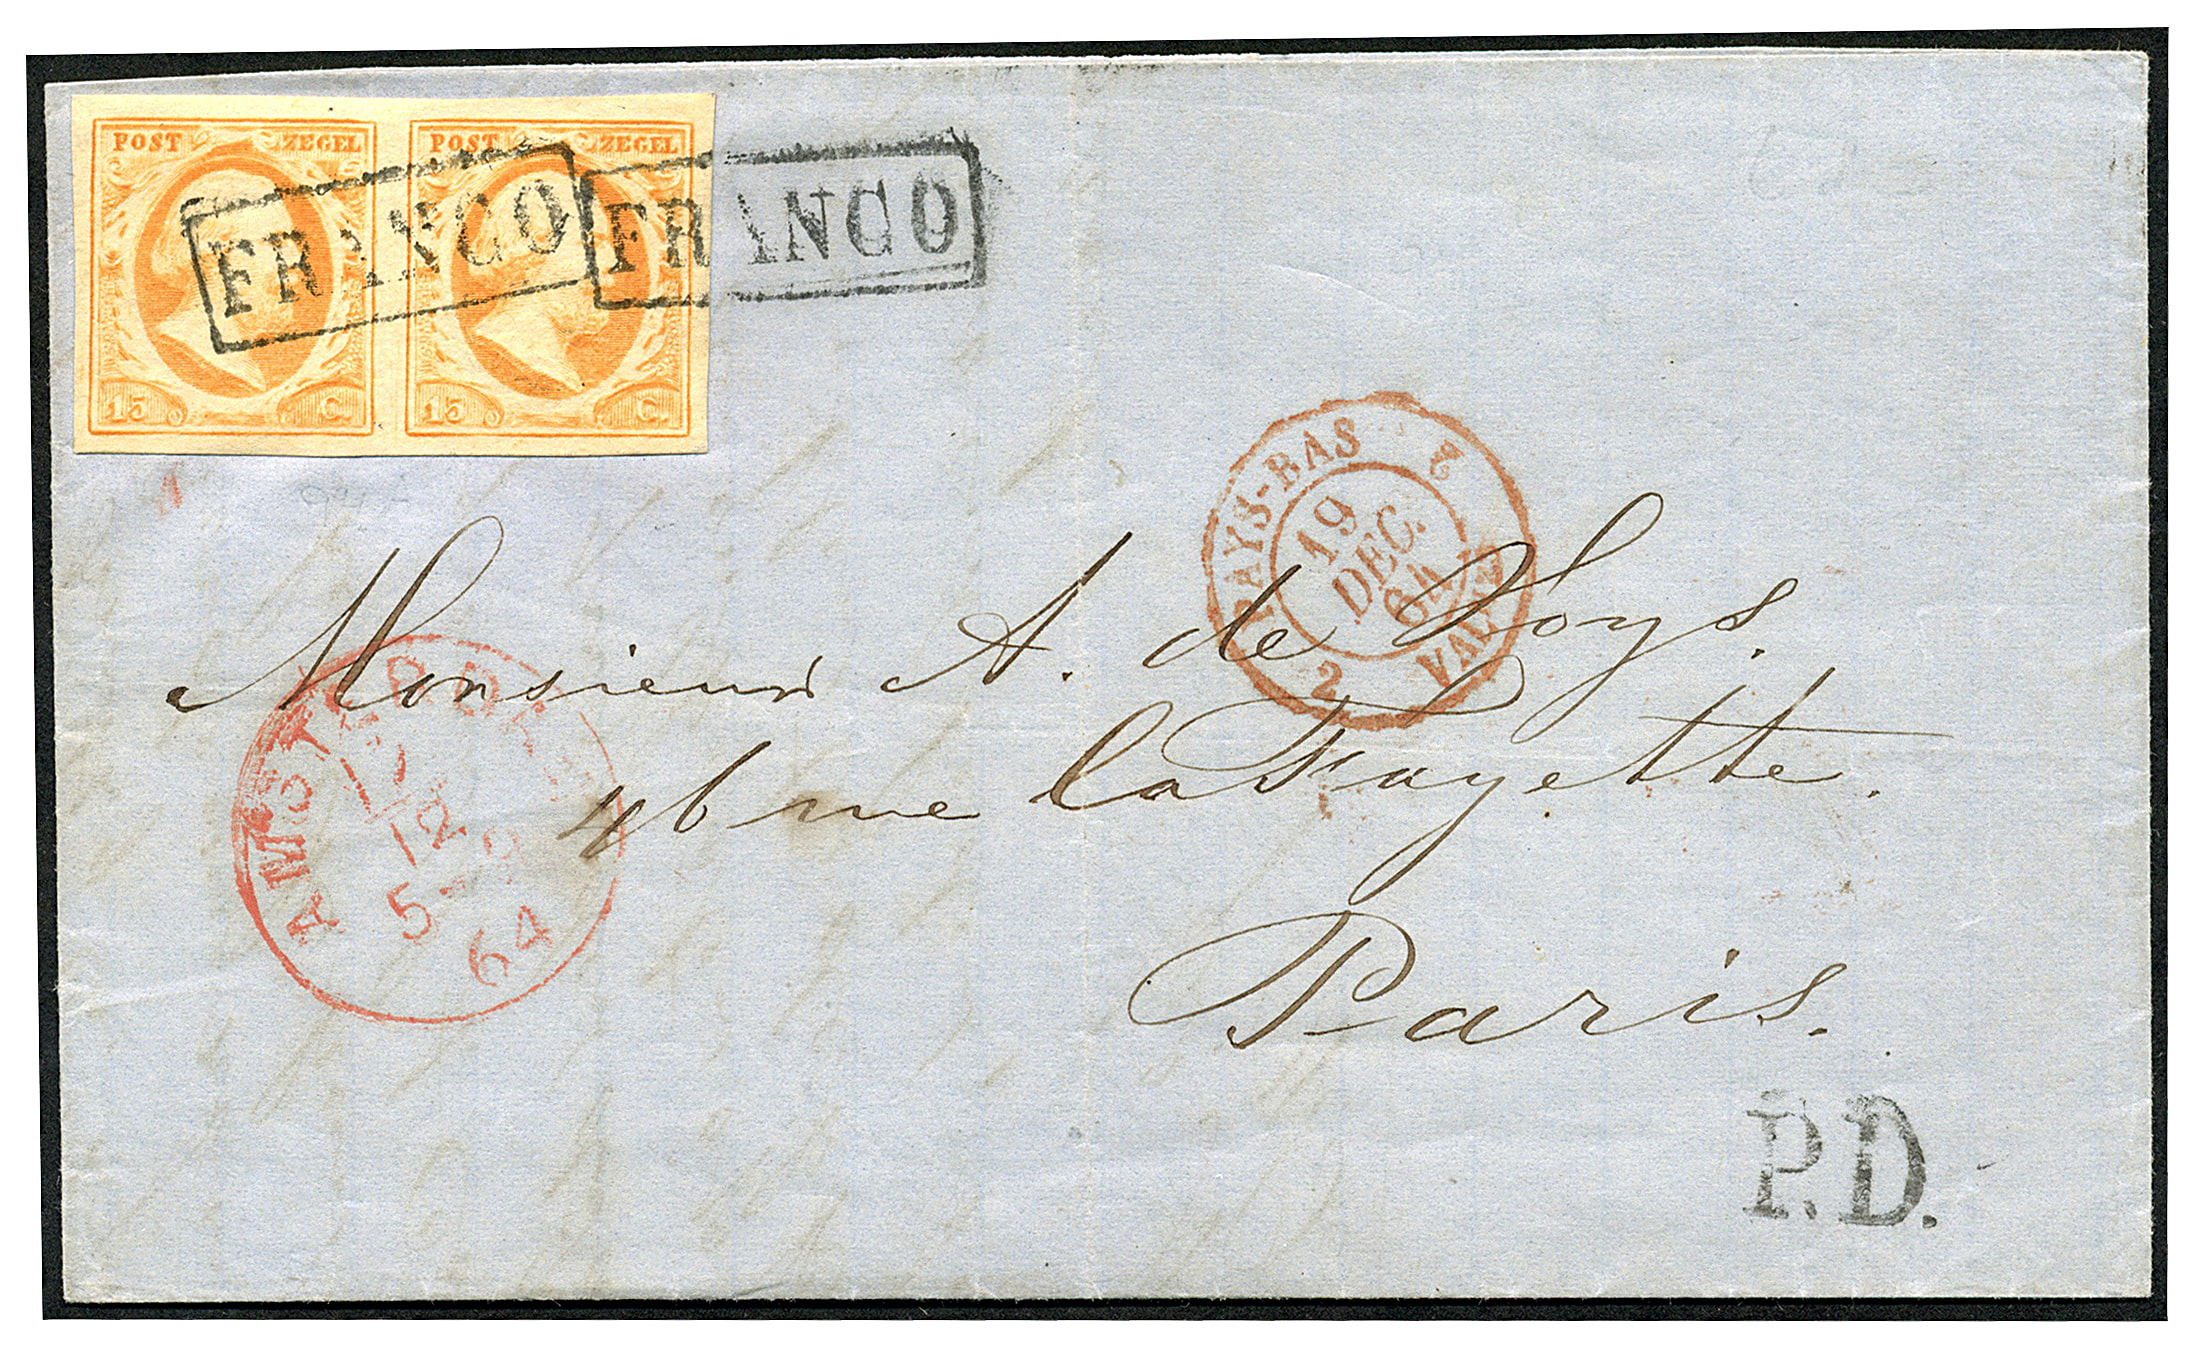 POST ZEGEL POST ZEGEL
FRANCO FRANCO
15 C. 15 C.
PAYS-BAS 2
19
DEC.
64
2
Monsieur A. de Loys.
46 rue LaFayette.
Paris.
12
5-
64
P.D.